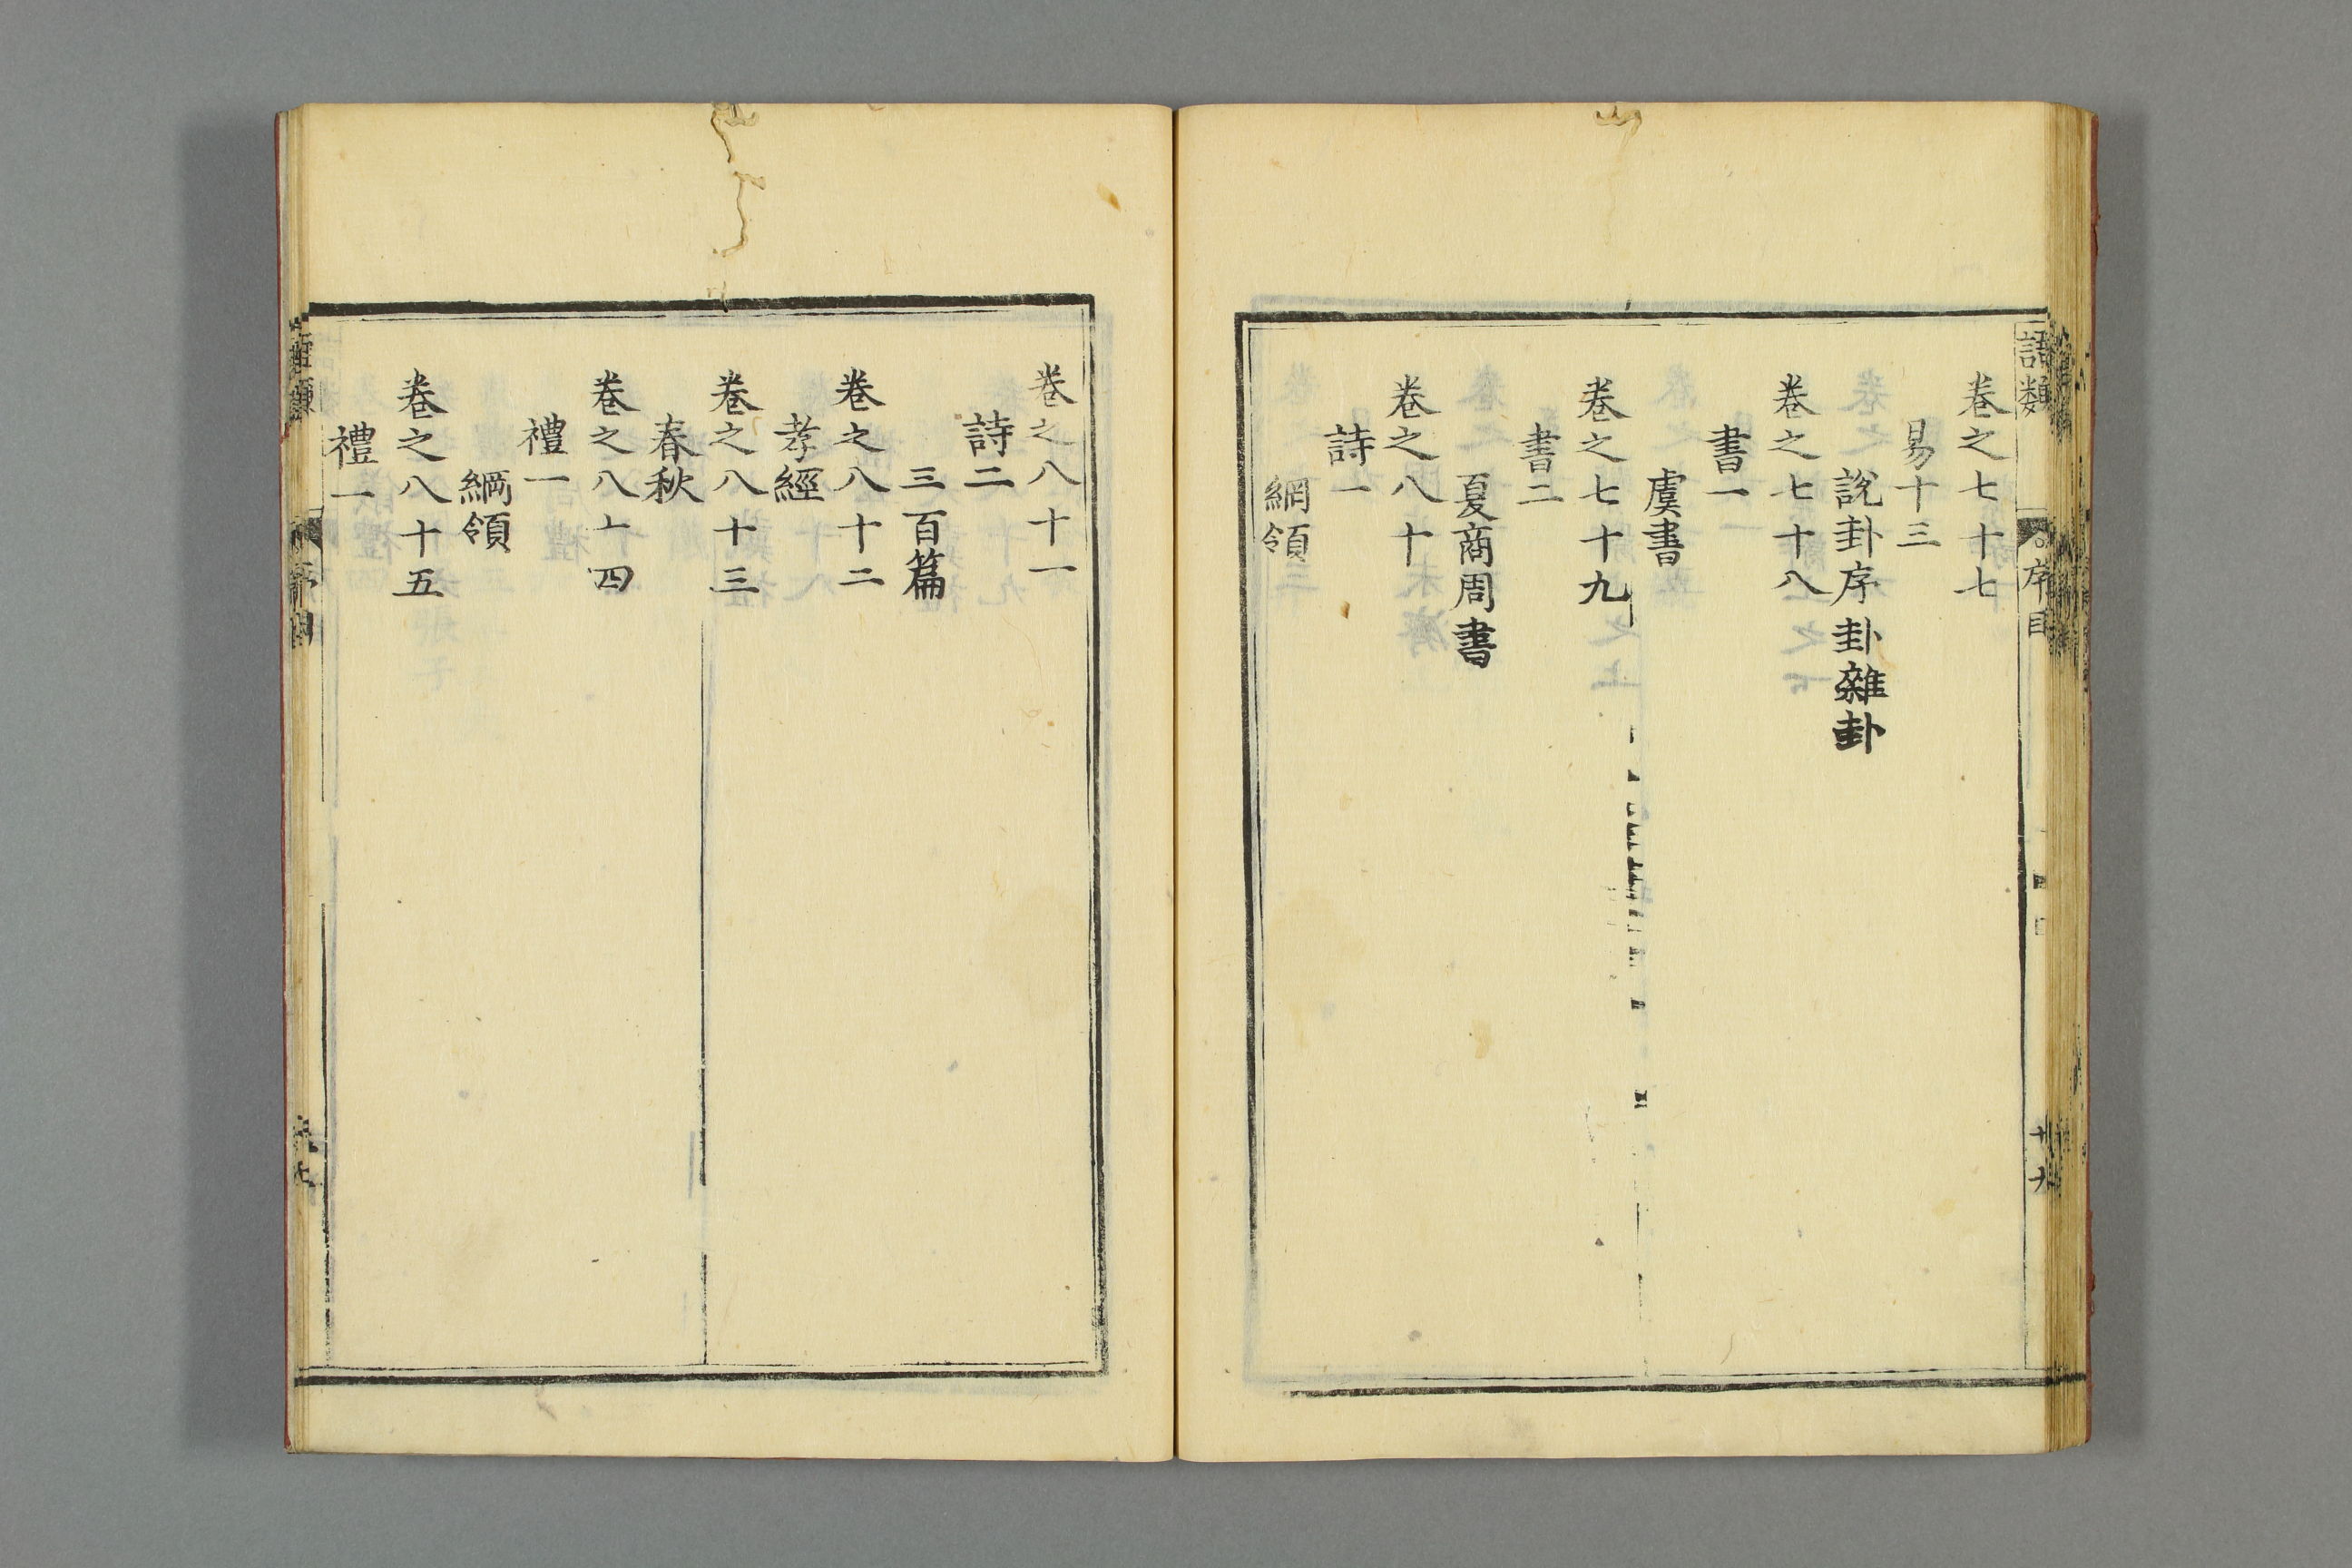 語類
序目
十九
卷之七十七
易十三
說卦序卦雜卦
卷之七十八
書一
虞書
卷之七十九
書二
夏商周書
卷之八十
詩一
綱領
卷之八十一
詩二
三百篇
卷之八十二
孝經
卷之八十三
春秋
卷之八十四
禮一
綱領
卷之八十五
禮一